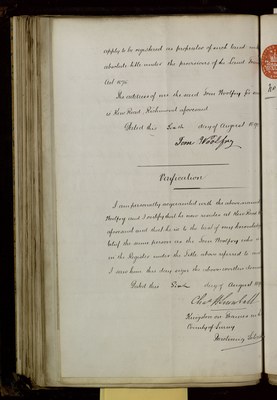 apply to be registered as proprietor of such land with
absolute title under the provisions of the Land
Act 1875
The address of me the said Tom Woolfrey is
at Kew Road Richmond aforesaid
Dated this day of August
Tom Woolfrey
Verification
I am personally acquainted with the abovenamed
Woolfrey and I certify that he now resides at Kew Road
aforesaid and that he is to the best of my knowledge
belief the same person as the Tom Woolfrey who is
in the Register under the title above referred to
I saw him this day sign the above written
Dated this day of August
Chas
Kingston on Thames in
County of Surrey